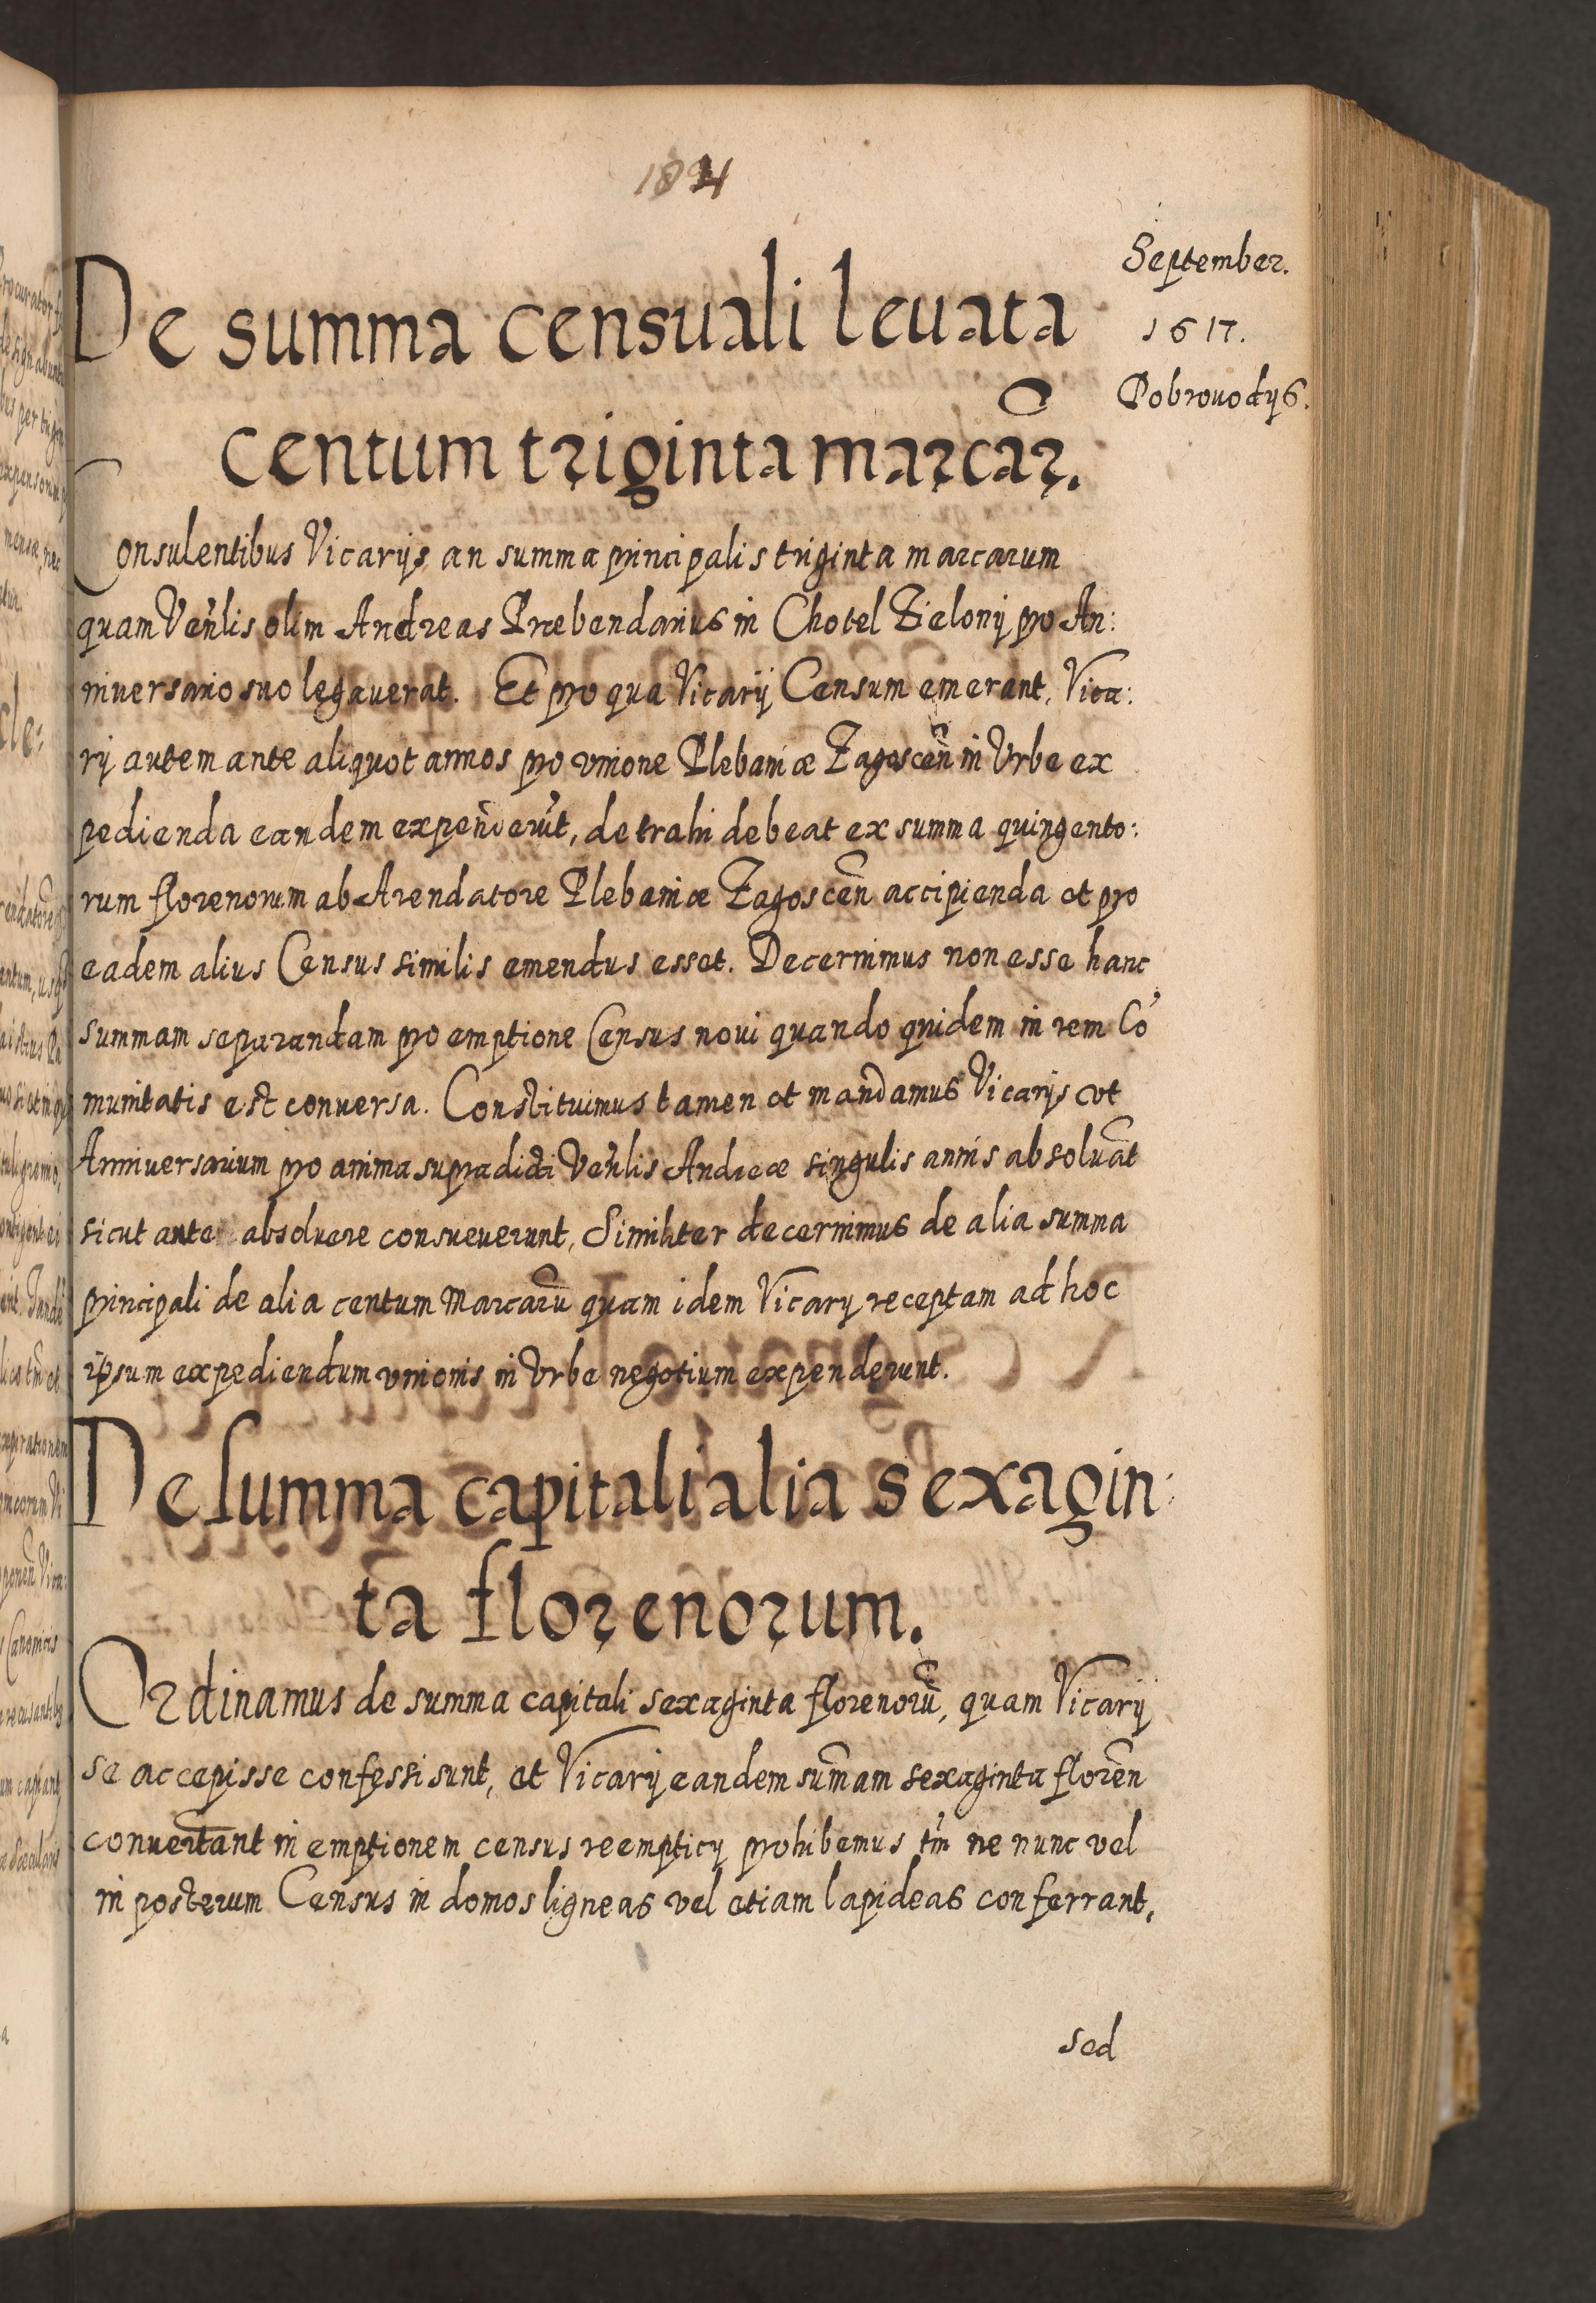 184
September.
1617.
Dobrouodys.
De summa censuali leuata
centum triginta marcar̃.
Consulentibus Vicarijs an summa principalis triginta marcarum
quam Veñlis olim Andreas Præbendarius in Chotel Zielonÿ pro An:
niuersario suo legauerat. Et pro qua Vicarij Censum emerant, Vica:
rij autem ante aliquot annos pro vnione Plebaniæ Zagosceñ in Vrbe ex
pedienda eandem expenderũt, detrahi debeat ex summa quingento:
rum florenorum ab Arendatore Plebaniæ Zagosceñ accipienda et pro
eadem alius Census similis emendus esset. Decernimus non esse hanc
summam separandam pro emptione Census noui quando quidem in rem Cõ
munitatis est conuersa. Constituimus tamen et mandamus Vicarijs vt
Anniuersarium pro anima supradicti Veñlis Andreæ singulis annis absoluãt
sicut ante absoluere consueuerunt, Similiter decernimus de alia summa
principali de alia centum Marcarũ quam idem Vicarij receptam ad hoc
ipsum expediendum vnionis in Vrbe negotium expenderunt.
De summa capitali alia sexagin:
ta florenorum.
Ordinamus de summa capitali sexaginta florenorũ, quam Vicarij
se accepisse confessi sunt, et Vicarij eandem sum̃am sexaginta floreñ
conuertant in emptionem census reempticij prohibemus tm̃ ne nunc vel
in posterum Census in domos ligneas vel etiam lapideas conferrant,
sed